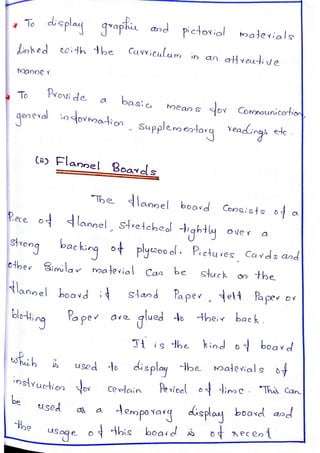 * To display graphic and pictorial materials
linked with the curriculum in an attractive
manner
* To Provide a basic means for Communication,
general information, supplementary readings etc.
(2) Flannel Boards
The flannel board Consists of a
Piece of flannel, stretched tightly over a
strong backing of plywood. Pictures, Cards and
other Similar material Can be stuck on the
flannel board if Stand Paper, felt Paper or
blotting Paper are glued to their back.
It is the kind of board
which is used to display the materials of
instruction for certain Period of time. This Can
be used as a temporary display board and
the usage of this board is of recent